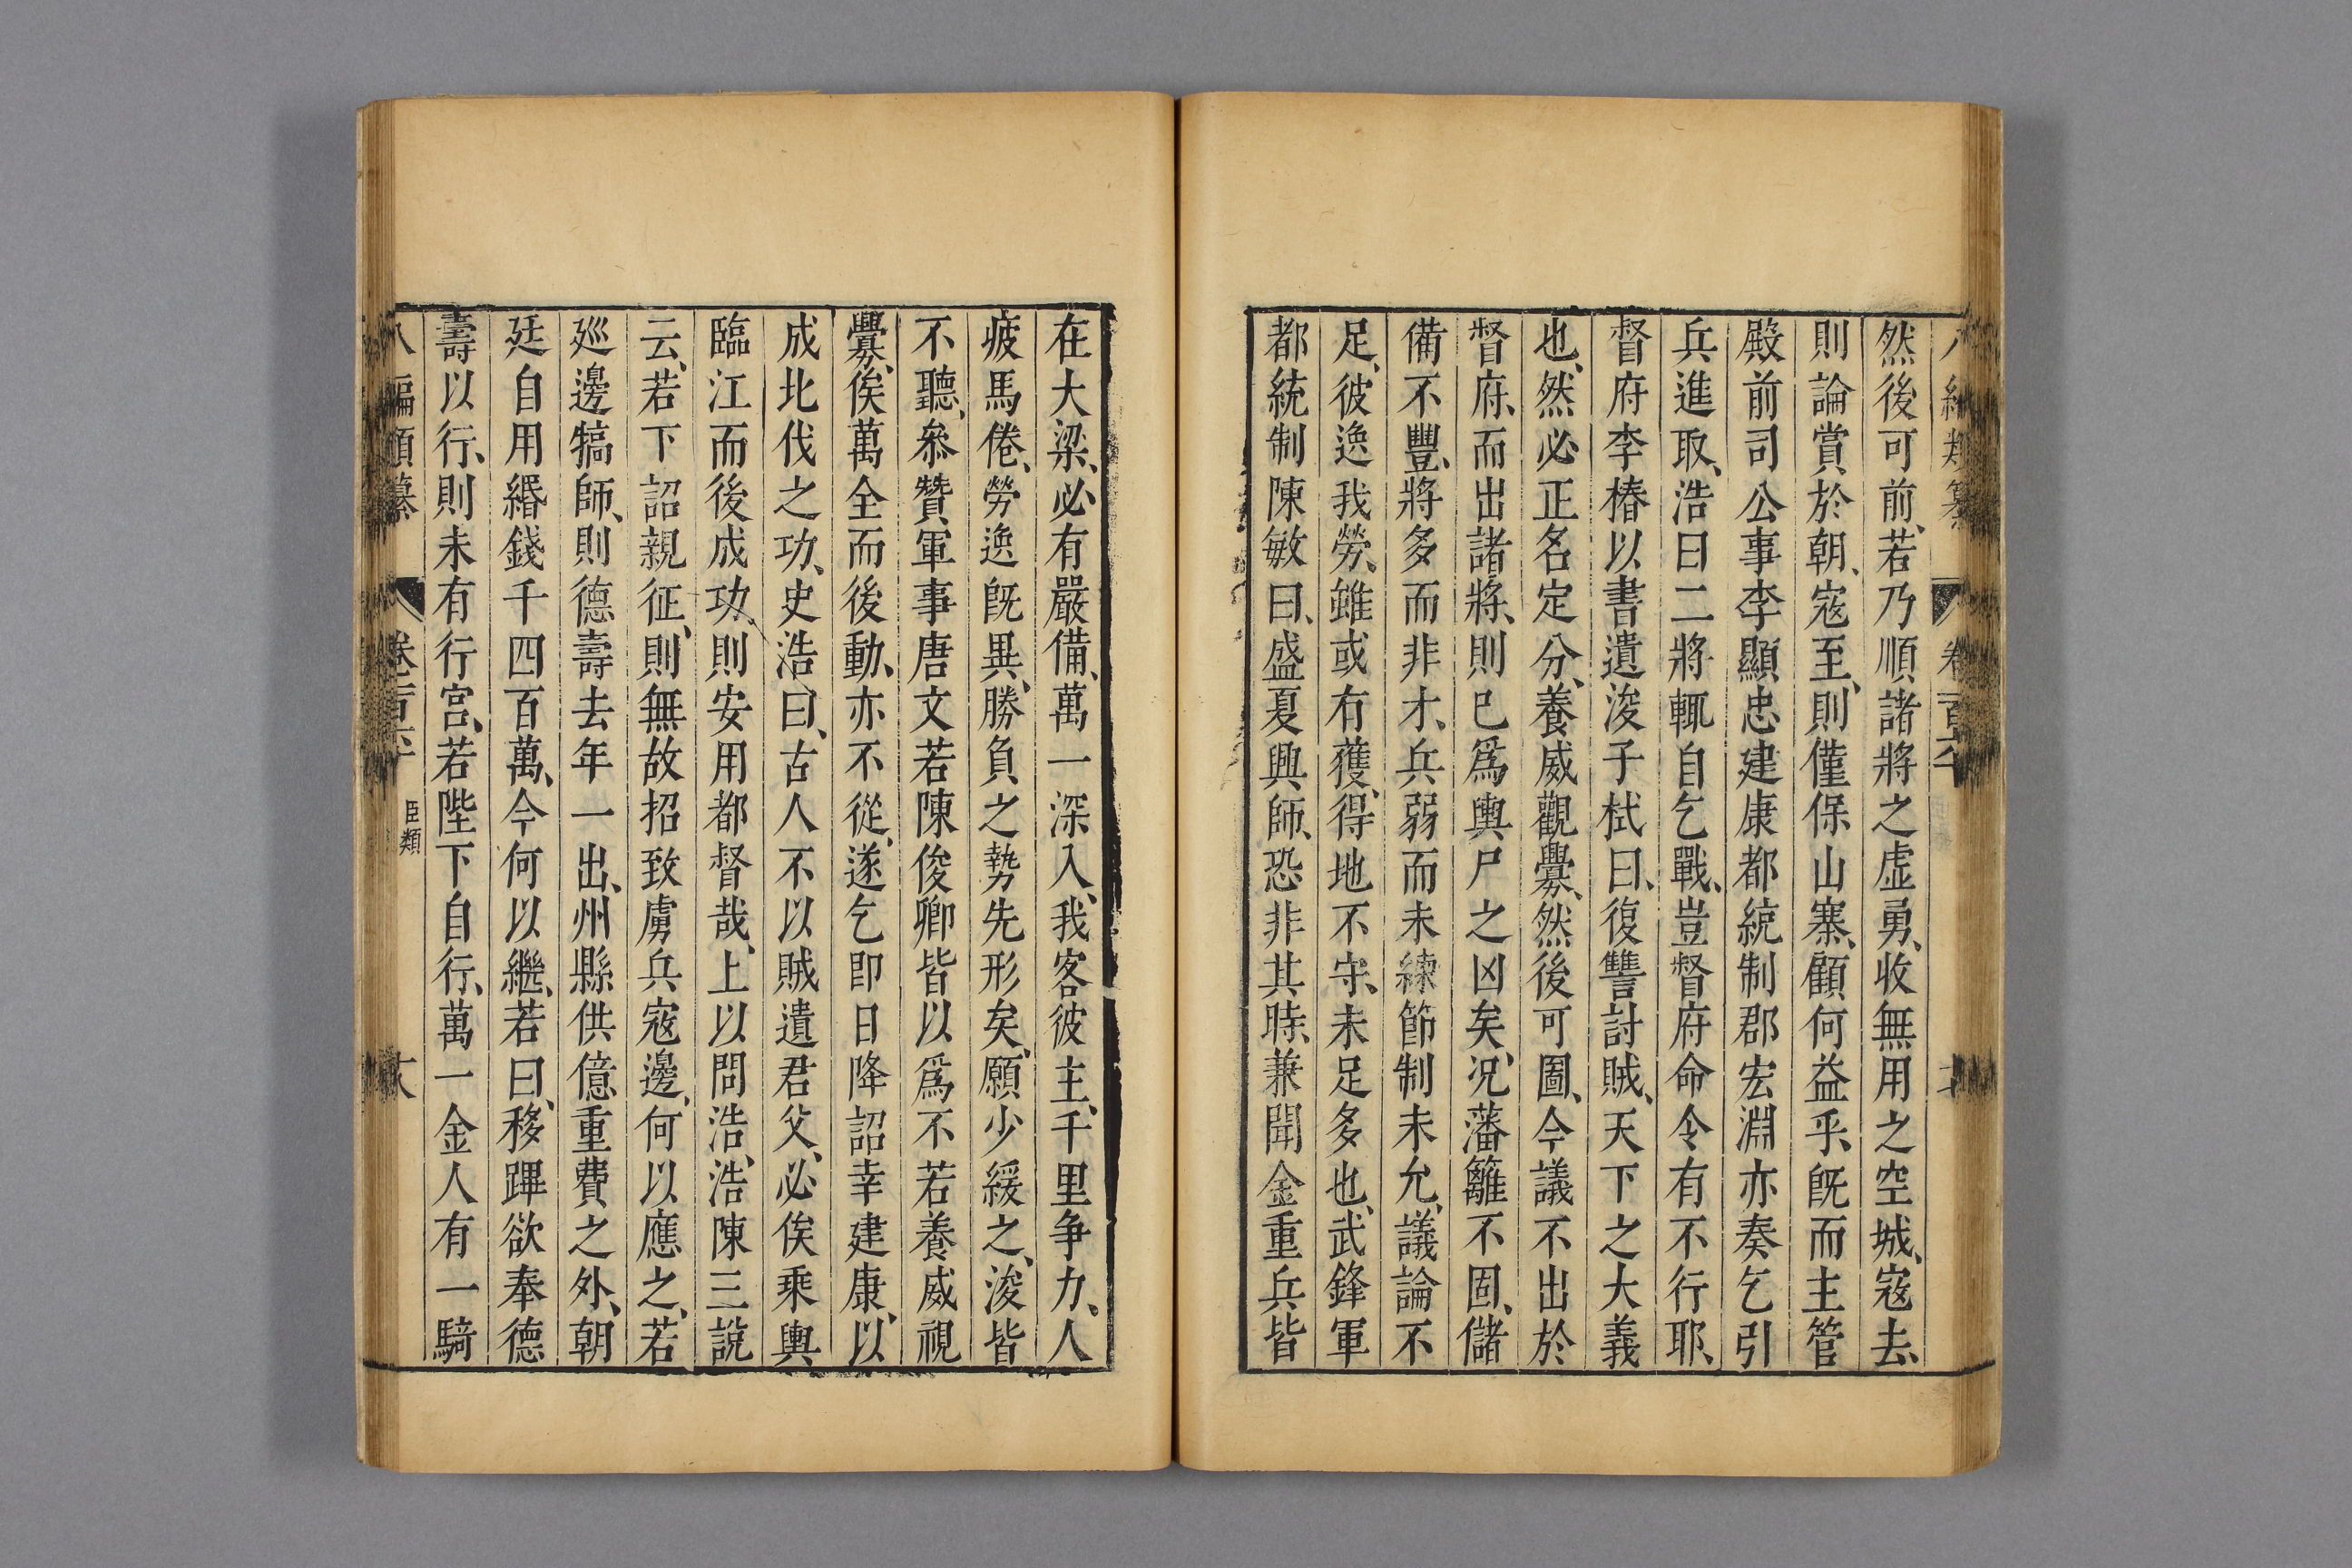 然後可前、若乃順諸將之虛勇、收無用之空城、寇去、
則論賞於朝、寇至、則僅保山寨、顧何益乎、旣而主管
殿前司公事李顯忠建康都統制郡宏淵亦奏乞引
兵進取、浩曰二將輒自乞戰、豈督府命令有不行耶、
督府李椿以書遺浚子栻曰、復讐討賊、天下之大義
也、然必正名定分、養威觀釁、然後可圖、今議不出於
督府、而出諸將、則已爲輿尸之凶矣、况藩籬不固、儲
備不豐、將多而非才、兵弱而未練、節制未允、議論不
足、彼逸我勞、雖或有獲、得地不守、未足多也、武鋒軍
都統制陳敏曰、盛夏興師、恐非其時、兼聞金重兵皆
在大梁、必有嚴備、萬一深入、我客彼主、千里争力、人
疲馬倦、勞逸旣異、勝負之勢先形矣、願少緩之、浚皆
不聽、叅贊軍事唐文若陳俊卿皆以爲不若養威視
釁、俟萬全而後動、亦不從、遂乞即日降詔幸建康、以
成北伐之功、史浩曰、古人不以賊遺君父、必俟乘輿
臨江而後成功、則安用都督哉、上以問浩、浩陳三說
云、若下詔親征、則無故招致虜兵寇邊、何以應之、若
廵邊犒師、則德壽去年一出、州縣供億重費之外、朝
廷自用緡錢千四百萬、今何以繼、若曰、移蹕欲奉德
壽以行、則未有行宫、若陛下自行、萬一金人有一騎
臣類